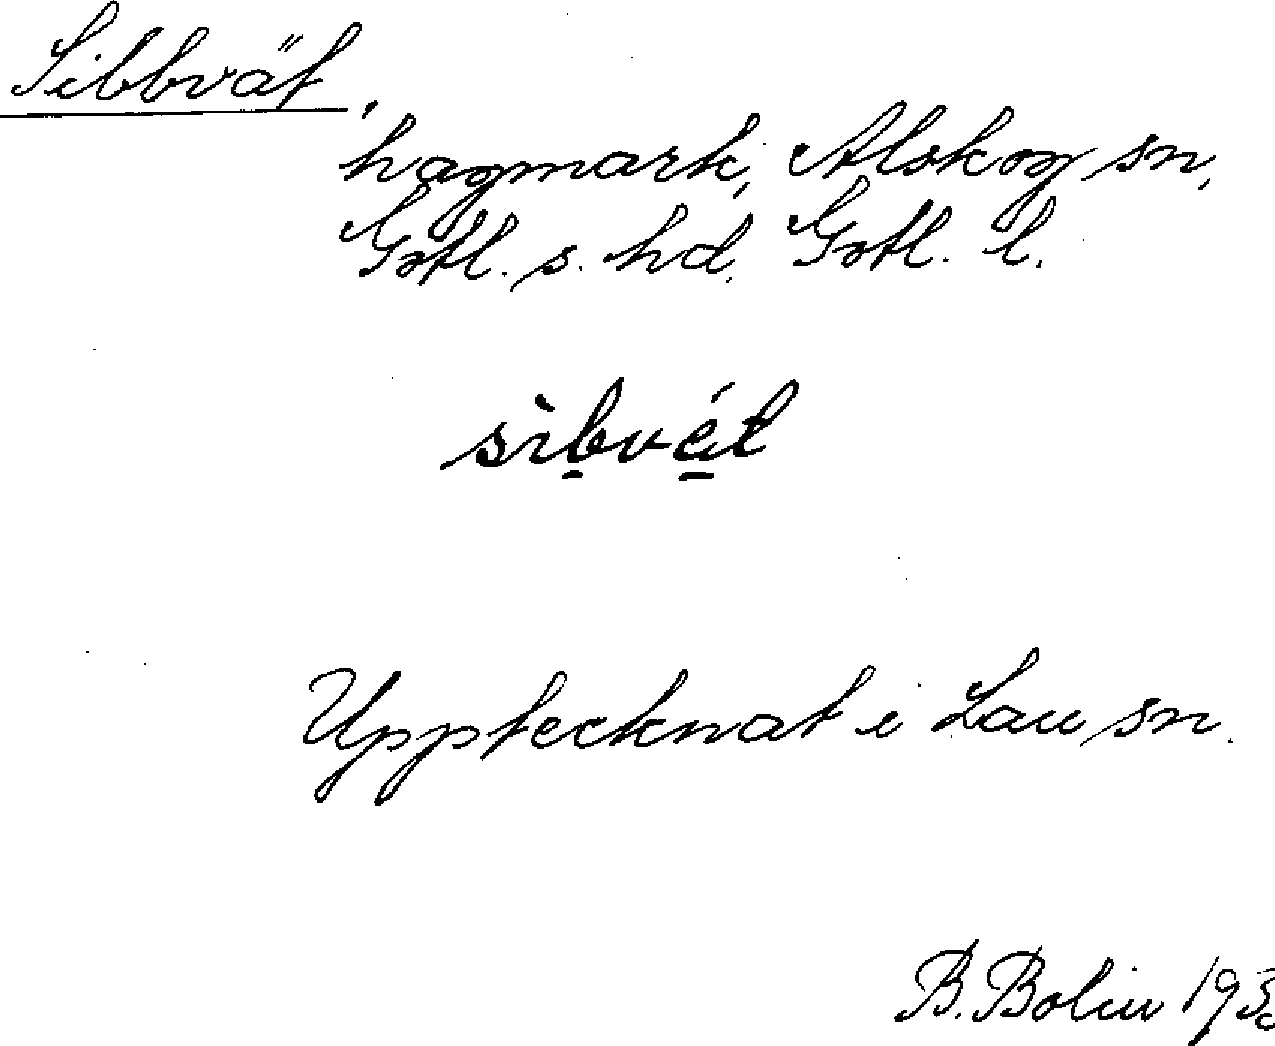 Sibbvät,
hagmark, Alskog sn,
Gotl. s. hd. Gotl. l.
sìb̠vé̠t
Upptecknat i Lau sn.
B. Bolin